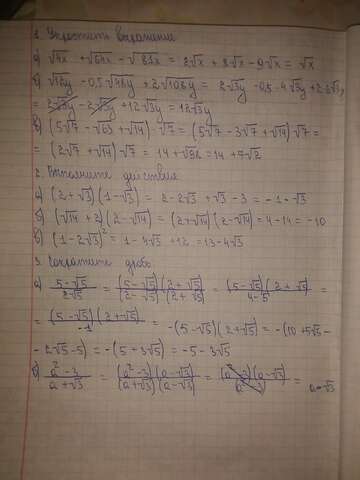 1. Упростить выражение
а) √4x + √64x - √81x = 2√x + 8√x - 9√x = √x
б) √12y - 0,5√48y + 2√108y = 2√3y - 0,5·4√3y + 2·6√3y
= 2√3y - 2√3y + 12√3y = 12√3y
в) (5√7 - √63 + √14)·√7 = (5√7 - 3√7 + √14)·√7 =
= (2√7 + √14)·√7 = 14 + √98 = 14 + 7√2
2. Выполните действия
а) (2 + √3)(1 - √3) = 2 - 2√3 + √3 - 3 = -1 - √3
б) (√14 + 2)(2 - √14) = (2 + √14)(2 - √14) = 4 - 14 = -10
в) (1 - 2√3)² = 1 - 4√3 + 12 = 13 - 4√3
3. Сократите дробь
а) 5 - √5 / 2 - √5 = (5 - √5)(2 + √5) / (2 - √5)(2 + √5) = (5 - √5)(2 + √5) / 4 - 5 =
= (5 - √5)(2 + √5) / -1 = -(5 - √5)(2 + √5) = -(10 + 5√5 -
- 2√5 - 5) = -(5 + 3√5) = -5 - 3√5
б) a² - 3 / a + √3 = (a² - 3)(a - √3) / (a + √3)(a - √3) = (a² - 3)(a - √3) / a² - 3 = a - √3